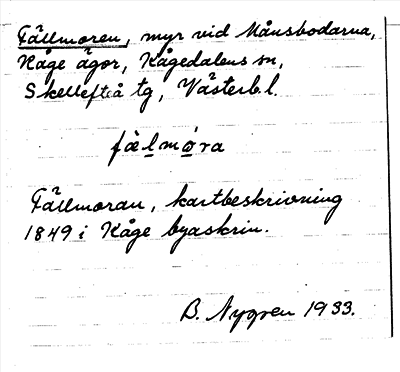 Fällmoren, myr vid Månsbodarna,
Kåge ägor, Kågedalens sn,
Skellefteå tg, Västerb.l.
fàl̲mó̲ra
Fällmoran, kartbeskrivning
1849 i Kåge byaskrin.
B. Nygren 1933.